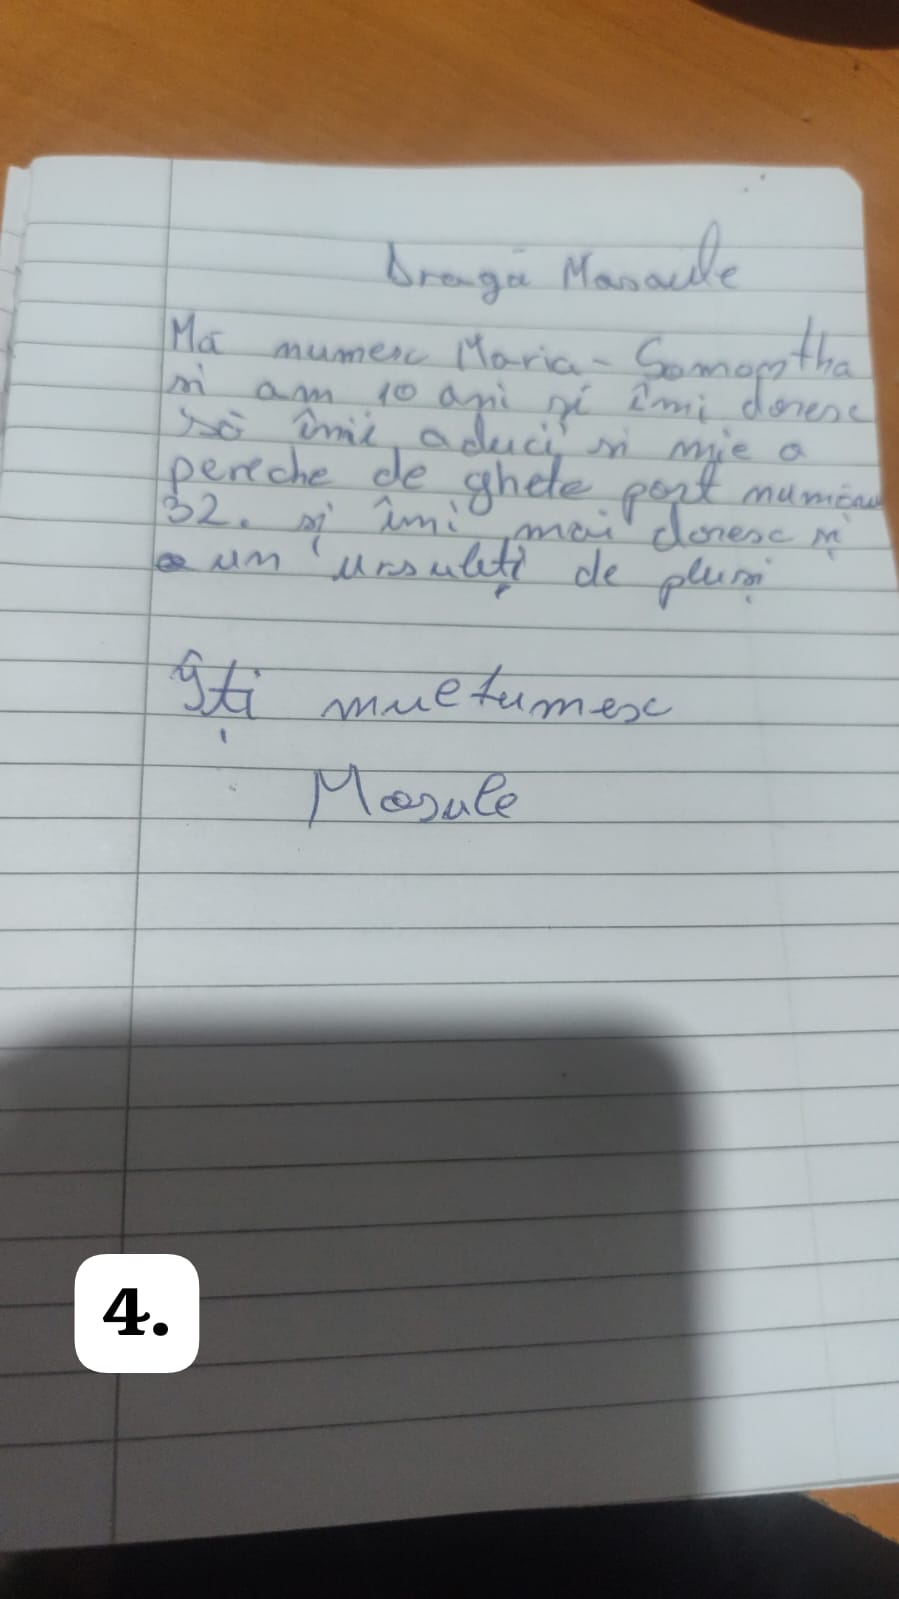 Dragă Masaule
Mă numesc Maria-Samantha
si am 10 ani și îmi doresc
să îmii aduci si mie o
pereche de ghete port număru
32. și îmi mai doresc și
un ursuleți de pluși
Îți muetumesc
Mosule
4.